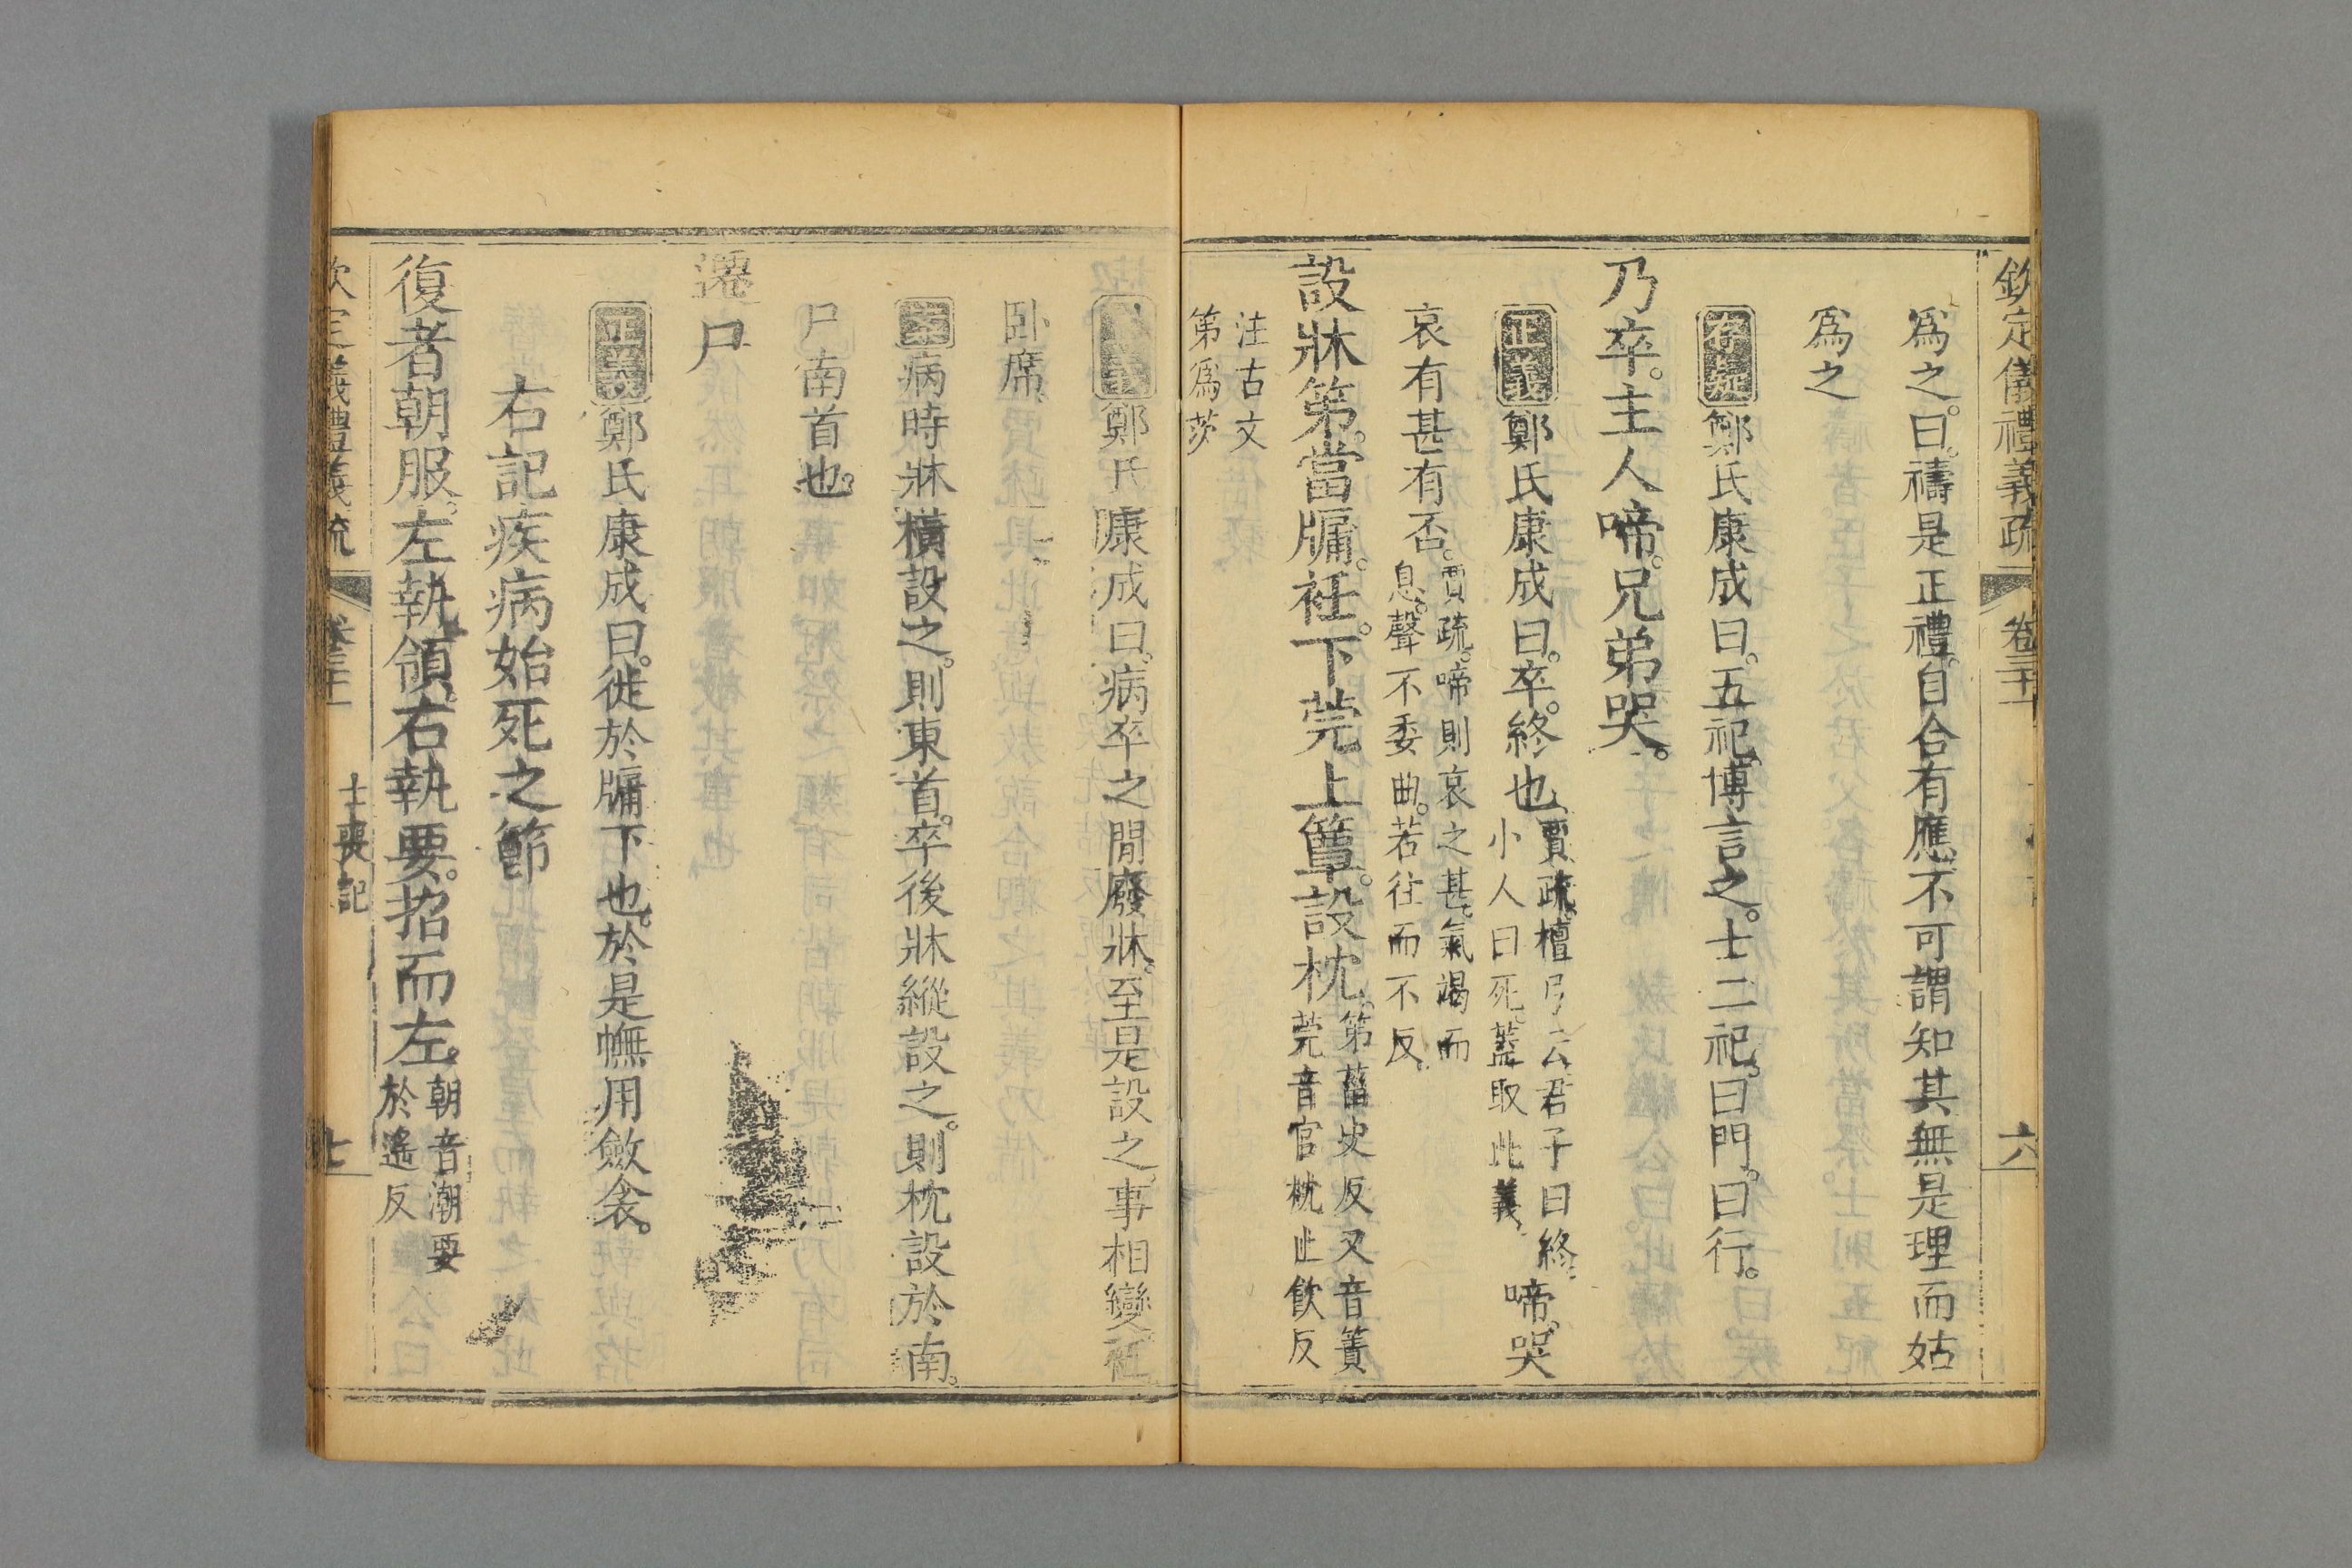 欽定儀禮義疏 卷三十 六
爲之。曰。禱是正禮。自合有應。不可謂知其無是理而姑
爲之
存疑鄭氏康成曰。五祀。博言之。士二祀。曰門。曰行。
乃卒。主人啼。兄弟哭。
正義鄭氏康成曰。卒。終也。
賈疏。檀弓云君子曰終。
小人曰死。蓋取此義。
啼。哭
哀有甚有否。
賈疏。啼則哀之甚。氣竭而
息。聲不委曲。若往而不反。
設牀笫。當牖。衽。下莞上簟。設枕。
笫。菑史反又音簀
莞音官枕止飲反
注古文
第爲茨
鄭氏康成曰。病卒之間廢牀。至是設之。事相變。衽
卧席。
案病時牀橫設之。則東首。卒後牀縱設之。則枕設於南。
尸南首也。
遷尸
正義鄭氏康成曰。徙於牖下也。於是幠用斂衾。
右記疾病始死之節
復者朝服。左執領。右執要。招而左。
朝音潮要
於遙反
欽定儀禮義疏 士喪記 七